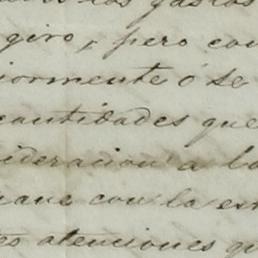 los gastos
giro, pero con
iormente ó se
cantidades que
sideracion a lo
que con la est
es atenciones q